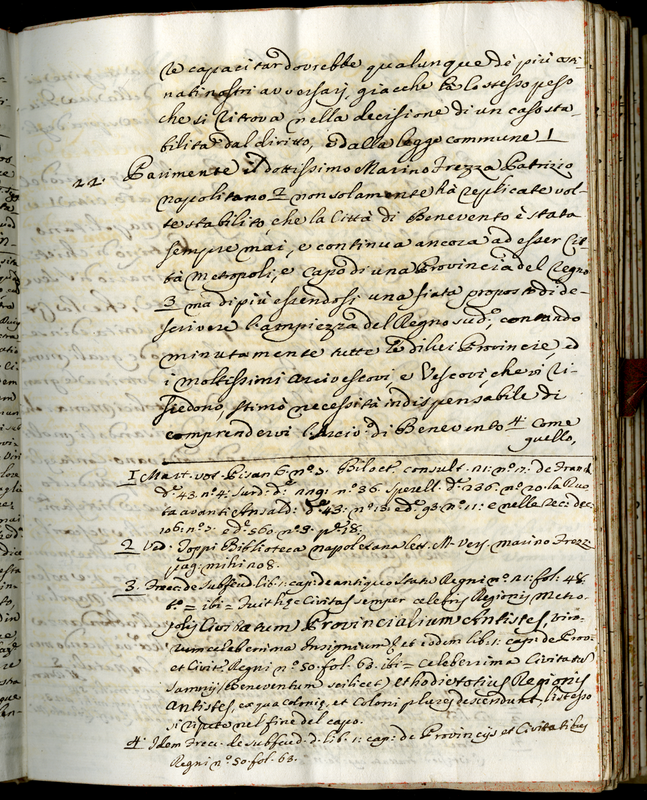 le capacitar dovrebbe qualunque de più osti-
nati nostri avversarj, giacche hà lo stesso peso
che si ritrova nella decisione di un caso sta-
bilita dal diritto, e dalla legge commune 1
22. Parimente il dottissimo Marino Frezza Patrizio
napolitano 2 non solamente hà replicate vol-
te stabilito, che la Città di Benevento è stata
sempre mai, e continua ancora ad esser Cit-
tà Metropoli, e capo di una Provincia del Regno
3 ma di più essendosi una fiata proposto di de-
scrivere l'ampiezza del Regno sud.º, contando
minutamente tutte le di lui Provincie, ed
i moltissimi Arcivescovi, e Vescovi, che vi ri-
siedono, stimò necessità indispensabile di
comprendervi l'Arciv.º di Benevento 4 come
quello,
1 Mart. vot. Pisan. 6. nº 3. consult. 21: nº 7: de Franc.
dº 43. nº 4: Surd. dº 229: nº 36. Sperell. dº 236. nº 20. la Ruo
ta avanti Ansald. dº 43: nº 13. ed 93 nº 11: e nelle Rec: dec:
106: nº 7: e dº 560 nº 8: pº 18:
2 Vid: Toppi Biblioteca napoletana lett. M. vers. Marino Frezz.
pag: mihi 208.
3. Frecc: de subfeud. lib: 1: cap: de antiquo Statu Regni nº 21: fol: 48.
tº = ibi = Fuit hęc Civitas semper celebris Regionis Metro-
polis Civitatum Provincialium Antistes, viro-
rum celeberrima Insignium & et eodem lib: 1: cap: de Prov:
et Civit: Regni nº 50. fol. 60. ibi = Celeberrima Civitatum
Samnij Beneventum scilicet, et hodie totius Regionis
Antistes, ex qua colonie, et Coloni plures descendunt, l'istesso
si ripete nel fine del capo.
4. Idem Frecc: de subfeud. d. lib: 1: cap: de Provincijs et Civitatibus
Regni nº 50. fol. 63.